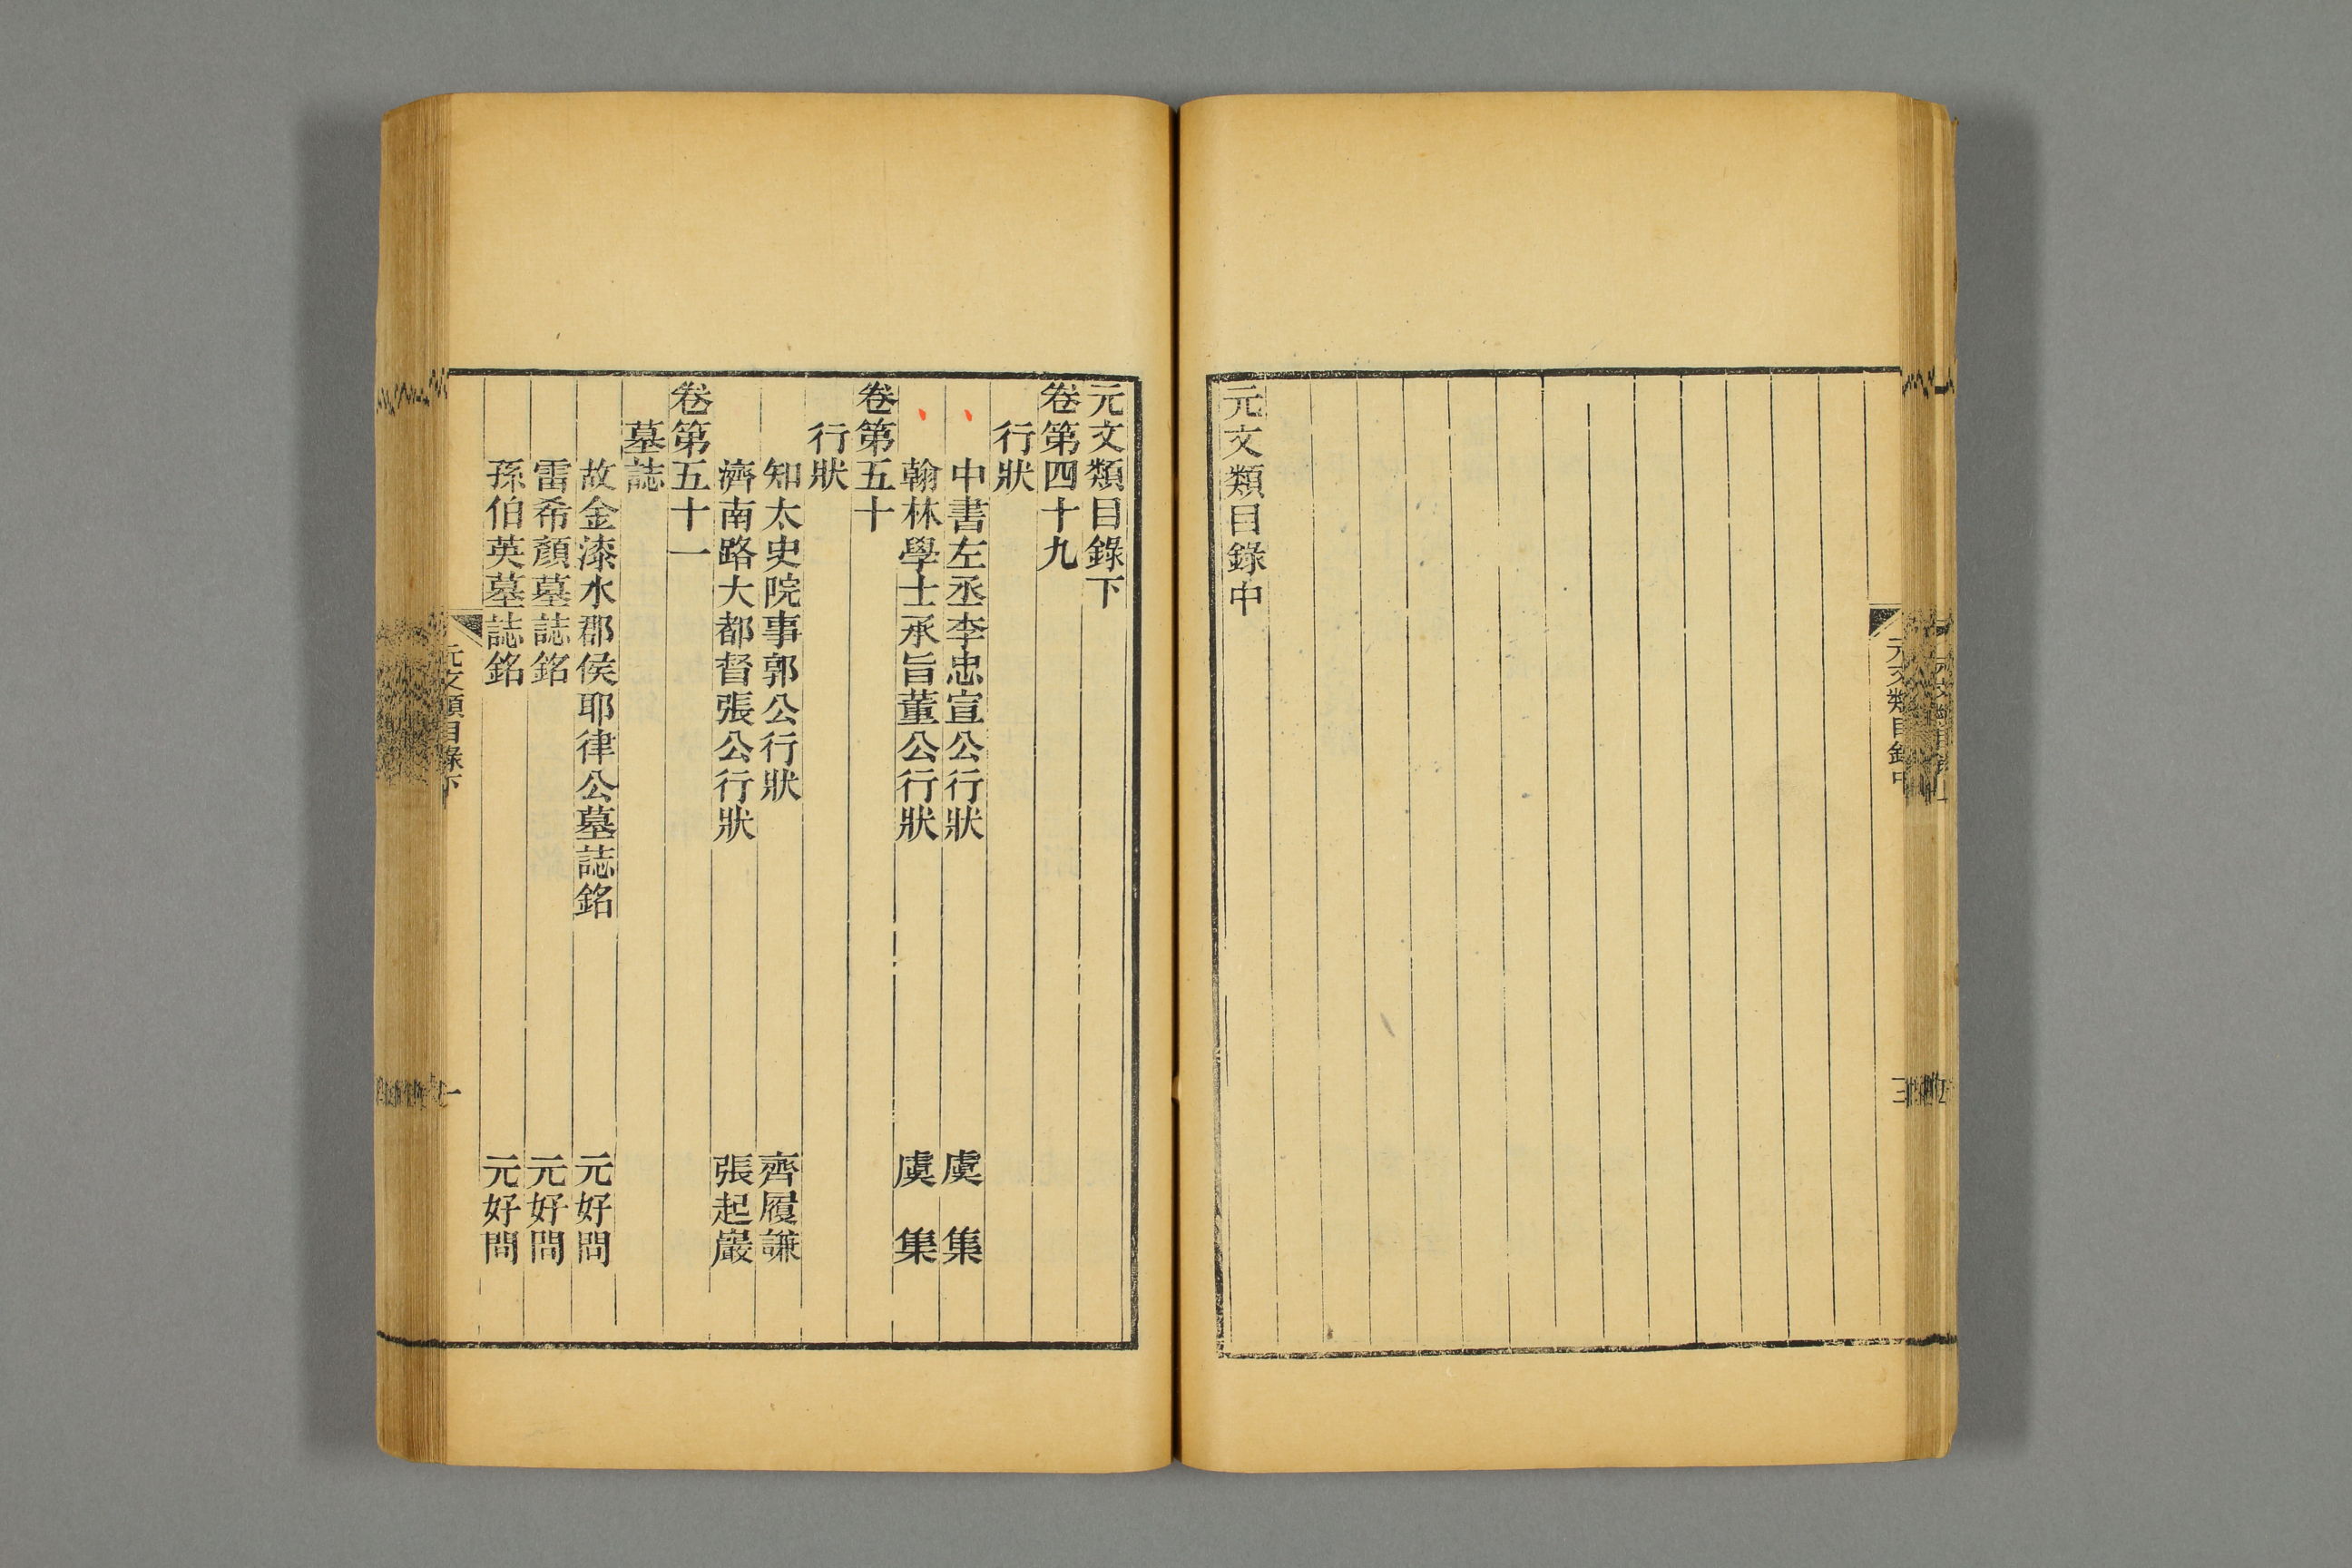 元文類目錄中
元文類目錄下
卷第四十九
行狀
中書左丞李忠宣公行狀 虞集
翰林學士承旨董公行狀 虞集
卷第五十
行狀
知太史院事郭公行狀 齊履謙
濟南路大都督張公行狀 張起巖
卷第五十一
墓誌
故金漆水郡侯耶律公墓誌銘 元好問
雷希顏墓誌銘 元好問
孫伯英墓誌銘 元好問
元文類目錄下
一